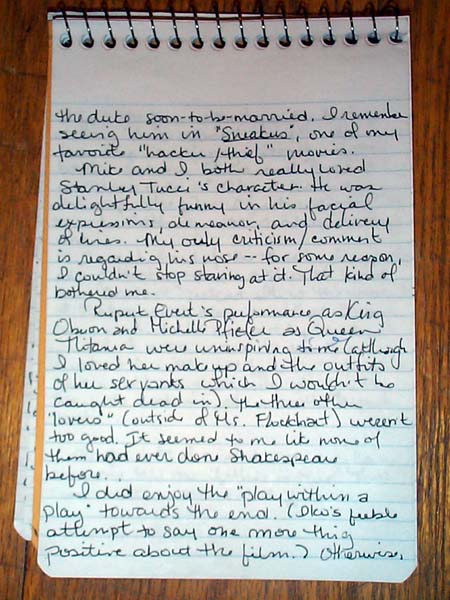 the duke soon-to-be-married. I remember
seeing him in "Sneakers", one of my
favorite "hacker/thief" movies.
Mike and I both really loved
Stanley Tucci's character. He was
delightfully funny in his facial
expressions, demeanor, and delivery
of lines. My only criticism/comment
is regarding his nose -- for some reason,
I couldn't stop staring at it. That kind of
bothered me.
Rupert Evert's performance as King
Oberon and Michelle Pfiefer as Queen
Titania were uninspiring to me (although
I loved her makeup and the outfits
of her servants which I wouldn't be
caught dead in). The three other
"lovers" (outside of Ms. Flockhart) weren't
too good. It seemed to me like none of
them had ever done Shakespeare
before.
I did enjoy the "play within a
play" towards the end. (Iko's feeble
attempt to say one more thing
positive about the film.) Otherwise,